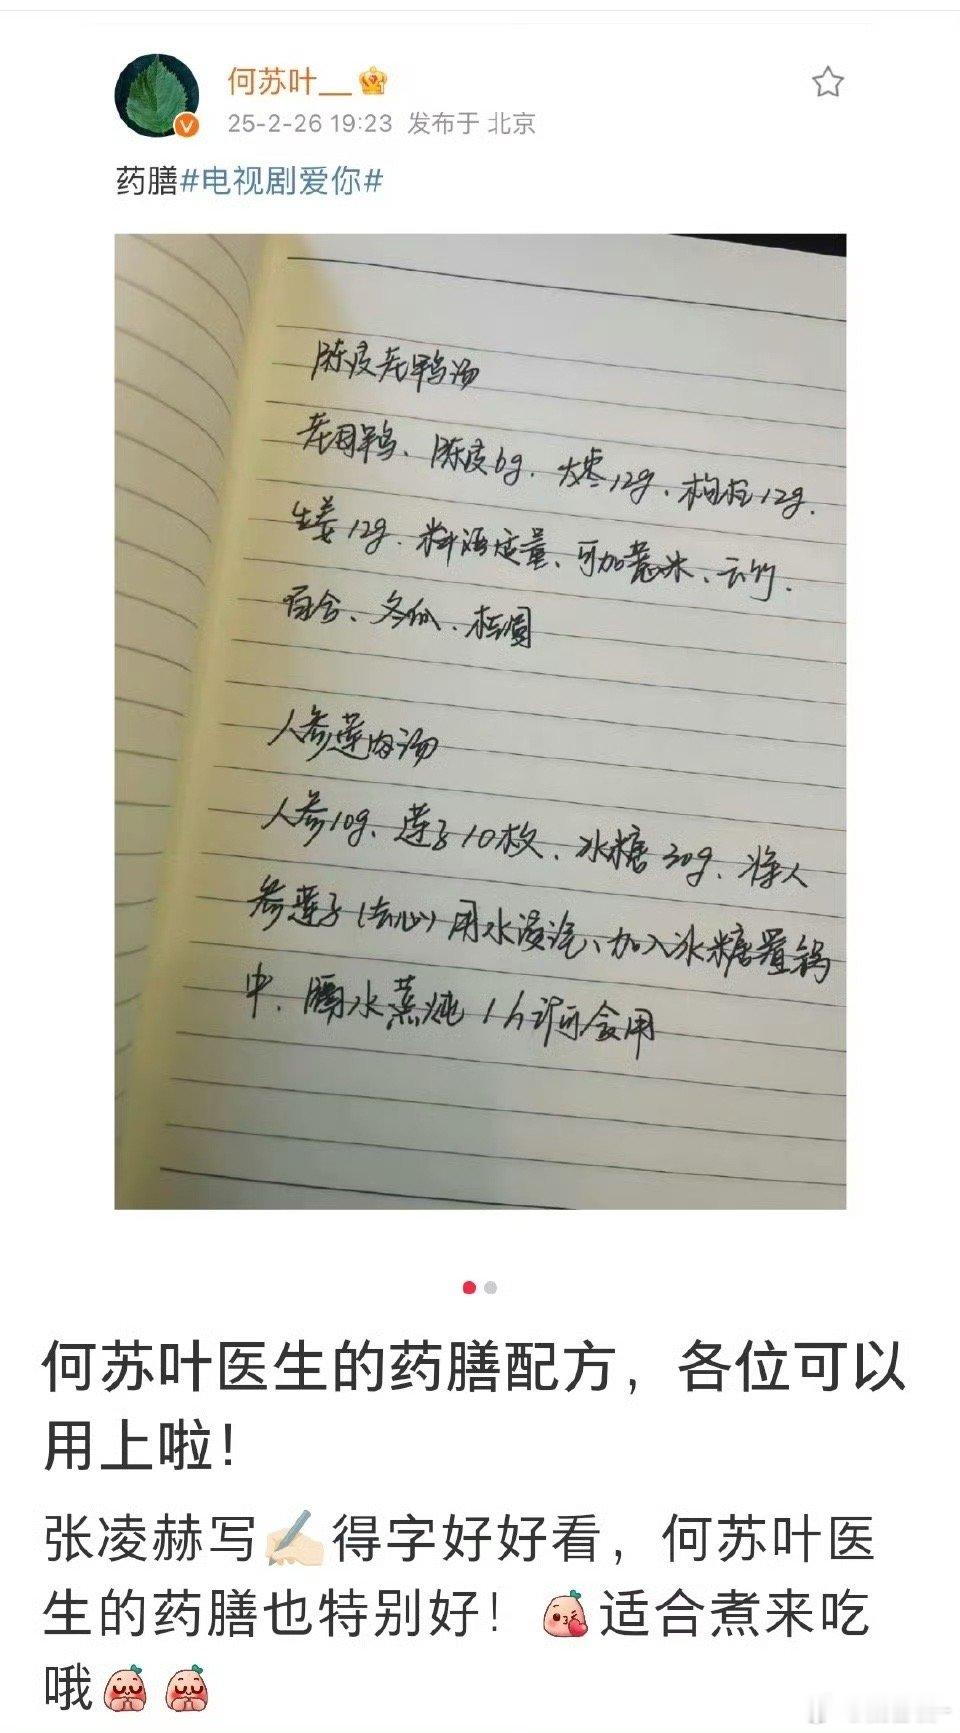 何苏叶__
25-2-26 19:23 发布于 北京
药膳#电视剧爱你#
陈皮老鸭汤
老母鸭、陈皮6g、大枣12g、枸杞12g、
生姜12g、料酒适量、可加薏米、玉竹、
百合、冬瓜、桂圆
人参莲肉汤
人参10g、莲子10枚、冰糖30g、将人
参莲子(去心)用水浸泡、加入冰糖置锅
中、隔水蒸炖1h许可食用
何苏叶医生的药膳配方，各位可以
用上啦！
张凌赫写✍🏻得字好好看，何苏叶医
生的药膳也特别好！适合煮来吃
哦